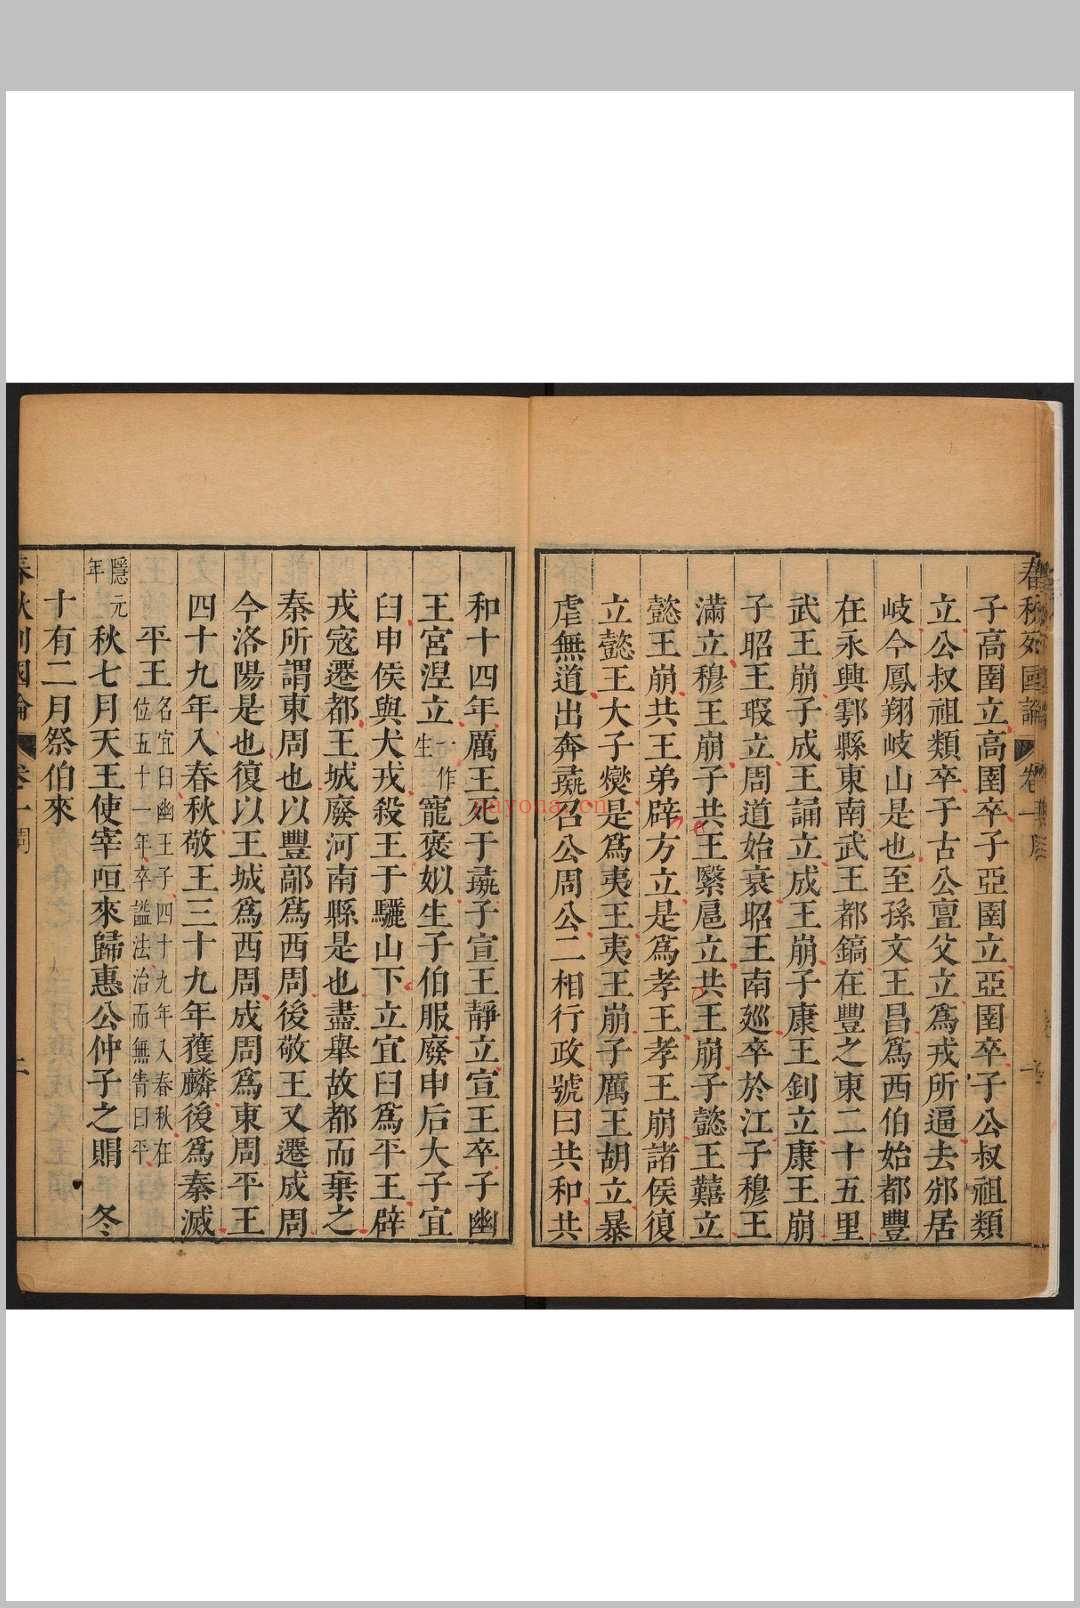 子高圉立高圉卒子亞圉立亞圉卒子公叔祖類
立公叔祖類卒子古公亶父立爲戎所逼去邠居
岐今鳳翔岐山是也至孫文王昌爲西伯始都豐
在永興鄠縣東南武王都鎬在豐之東二十五里
武王崩子成王誦立成王崩子康王釗立康王崩
子昭王瑕立周道始衰昭王南廵卒於江子穆王
滿立穆王崩子共王緊扈立共王崩子懿王囏立
懿王崩共王弟辟方立是爲孝王孝王崩諸侯復
立懿王大子燮是爲夷王夷王崩子厲王胡立暴
虐無道出奔彘召公周公二相行政號曰共和共
和十四年厲王死于彘子宣王靜立宣王卒子幽
王宮湼立一作生寵褒姒生子伯服廢申后大子宜
臼申侯與犬戎殺王于驪山下立宜臼爲平王辟
戎寇遷都王城廢河南縣是也盡舉故都而棄之
秦所謂東周也以豐鄗爲西周後敬王又遷成周
今洛陽是也復以王城爲西周成周爲東周平王
四十九年入春秋敬王三十九年獲麟後爲秦滅
平王名宜臼幽王子四十九年入春秋在位五十一年卒諡法治而無眚曰平
隱元年秋七月天王使宰咺來歸惠公仲子之賵　冬
十有二月祭伯來
春秋列國論　卷一 周
gayona.cn